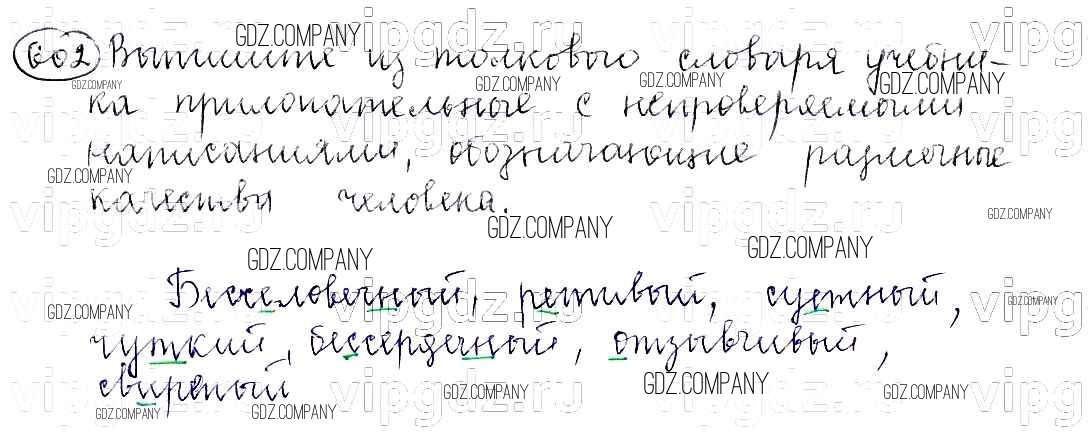 602 Выпишите из толкового словаря учебни-
ка прилагательные с непроверяемыми
написаниями, обозначающие различные
качества человека.
Бесчеловечный, ретивый, суетный,
чуткий, бессердечный, отзывчивый,
свирепый
GDZ.COMPANY
vipgdz.ru